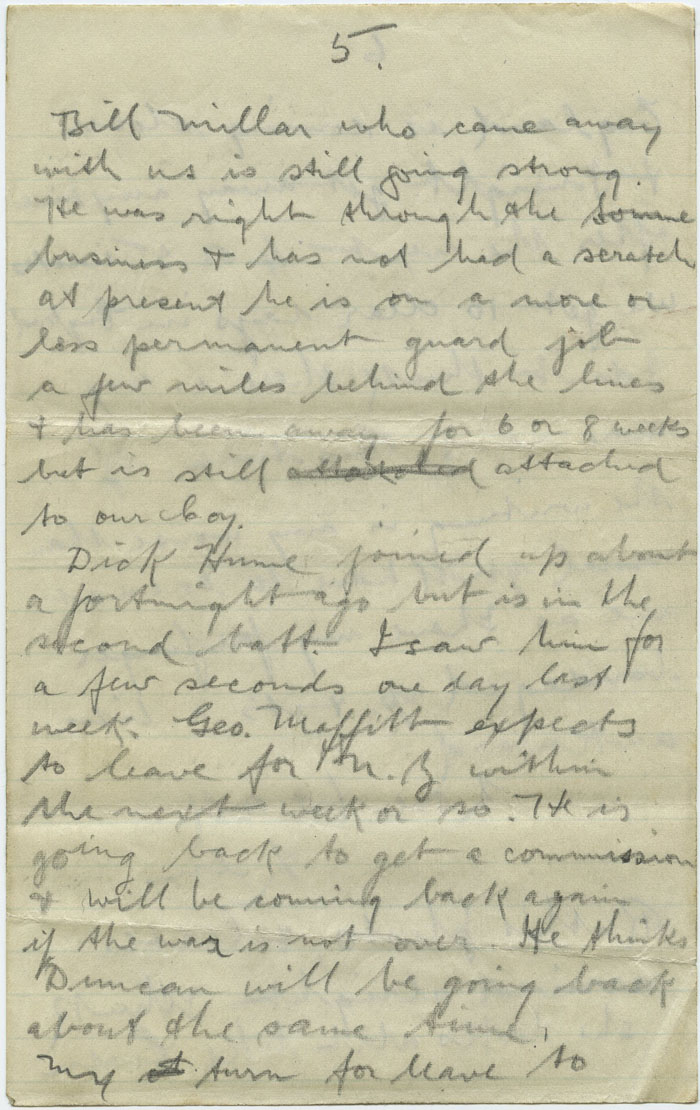 5.
Bill Millar who came away
with us is still going strong
He was right through the Somme
business & has not had a scratch
at present he is on a more or
less permanent guard job
a few miles behind the lines
& has been away for 6 or 8 weeks
but is still attached
to our Coy.
Dick Hume joined up about
a fortnight ago but is in the
second batt. I saw him for
a few seconds one day last
week. Geo. Maffitt expects
to leave for N.Z within
the next week or so. He is
going back to get a commission
& will be coming back again
if the war is not over. He thinks
Duncan will be going back
about the same time.
My turn for leave to